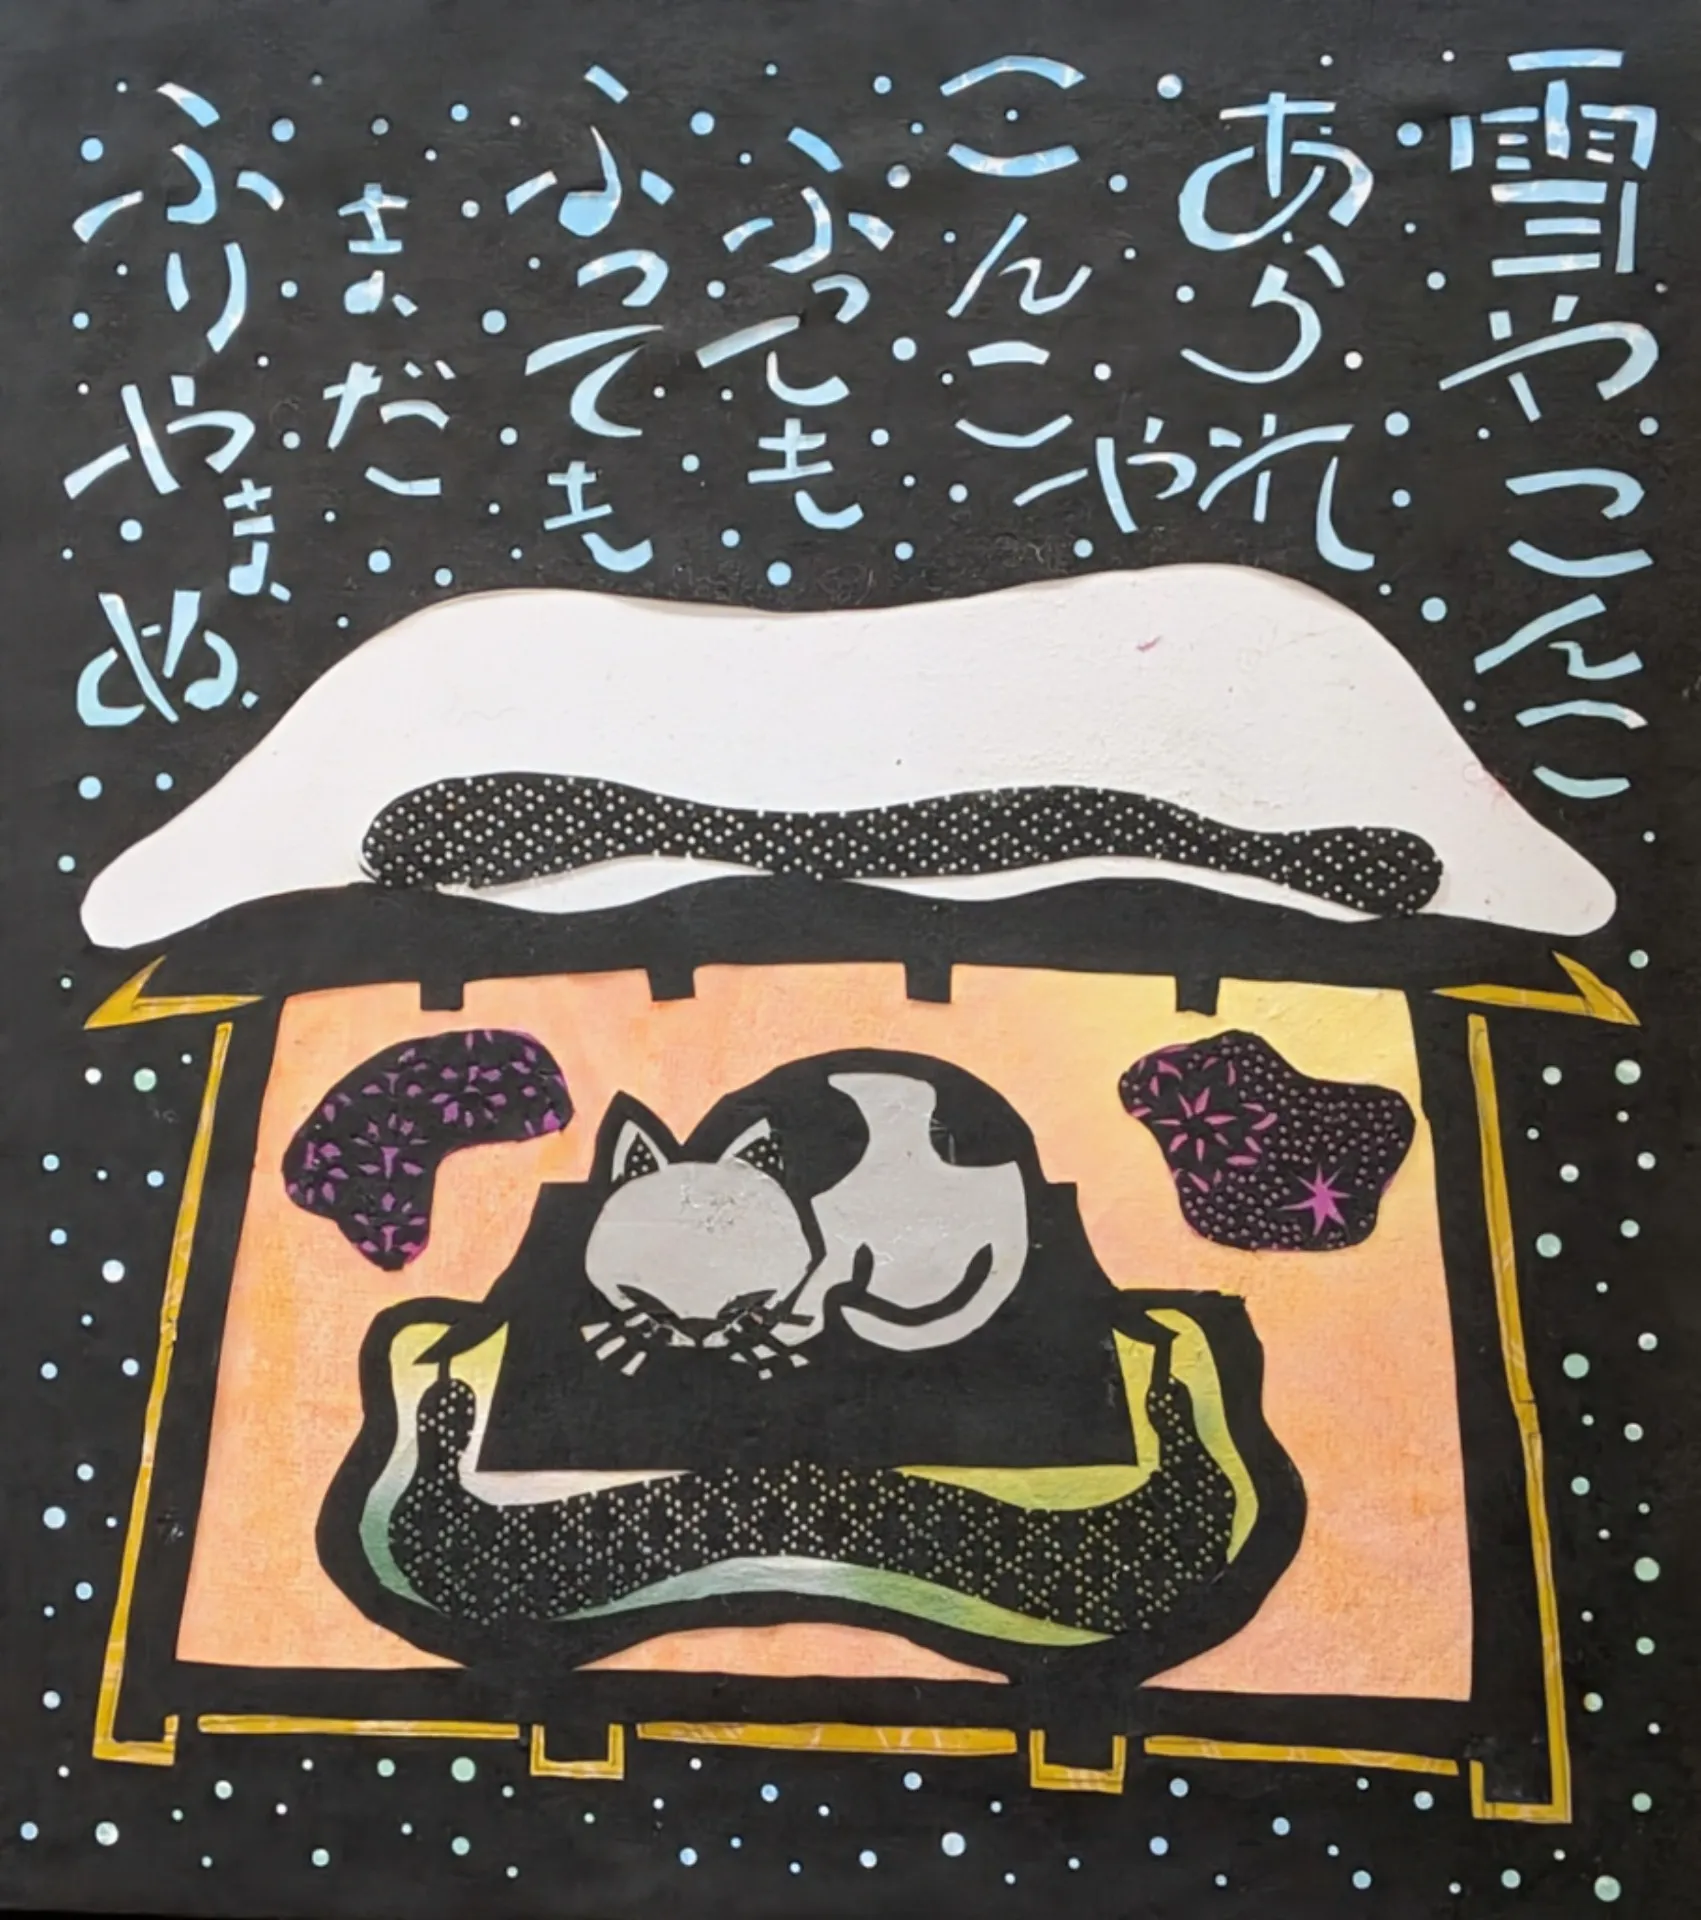 雪やこんこ
あられや
こんこ
ふっても
ふっても
まだ
ふりやまぬ